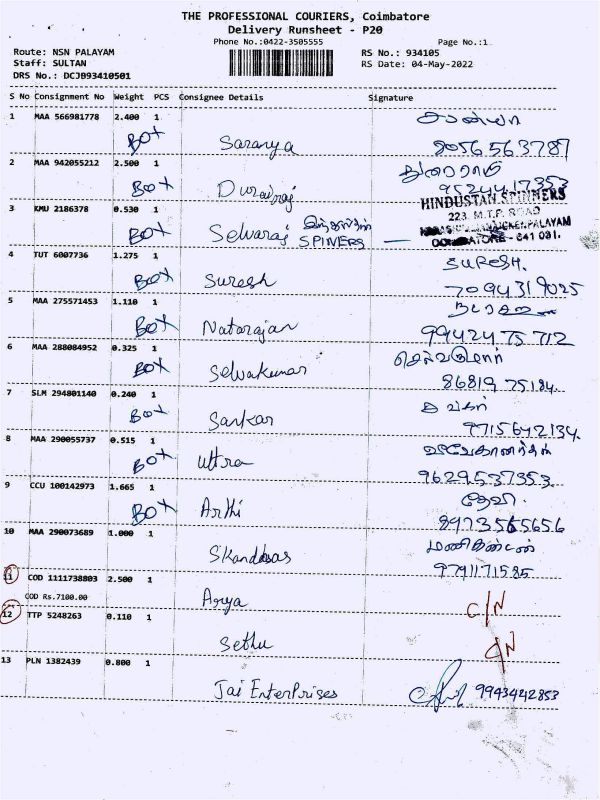 THE PROFESSIONAL COURIERS, Coimbatore
Delivery Runsheet - P20
Phone No.:0422-3505555
Page No.:1
Route: NSN PALAYAM
RS No.: 934105
Staff: SULTAN
RS Date: 04-May-2022
DRS No.: DCJB93410501
S No Consignment No Weight PCS Consignee Details Signature
சரண்யா
1 MAA 566981778 2.400 1
Box Saranya 8056563787
துரைராஜ்
2 MAA 942055212 2.500 1
Box Durairaj 9524417353
HINDUSTAN SPINNERS
3 KMU 2186378 0.530 1
223, M.T.P. ROAD
Box Selvaraj SPINERS
COIMBATORE - 641 031.
4 TUT 6007736 1.275 1
SURESH.
Box Suresh 7094319025
5 MAA 275571453 1.110 1
Box Natarajan 9942475712
6 MAA 288084952 0.325 1
செல்வகுமார்
Box Selvakumar 8681975184
7 SLM 294801140 0.240 1
Box Sankar 9715642134
8 MAA 290055737 0.515 1
Box Uttra 9629537353
9 CCU 100142973 1.665 1
தேவி
Box Arthi 8973565656
10 MAA 290073689 1.000 1
மணிகண்டன்
Skandasas 9791171585
11 COD 1111738803 2.500 1
COD Rs.7100.00
Arya C/N
12 TTP 5248263 0.110 1
Sethu C/N
13 PLN 1382439 0.800 1
Jai Enterprises 9943442853